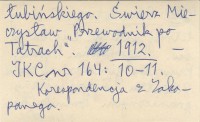 łubińskiego. Świerz Mie-
czysław "Przewodnik po
Tatrach". 1912. –
IKC nr 164: 10–11.
Korespondencja z Zako-
panego.